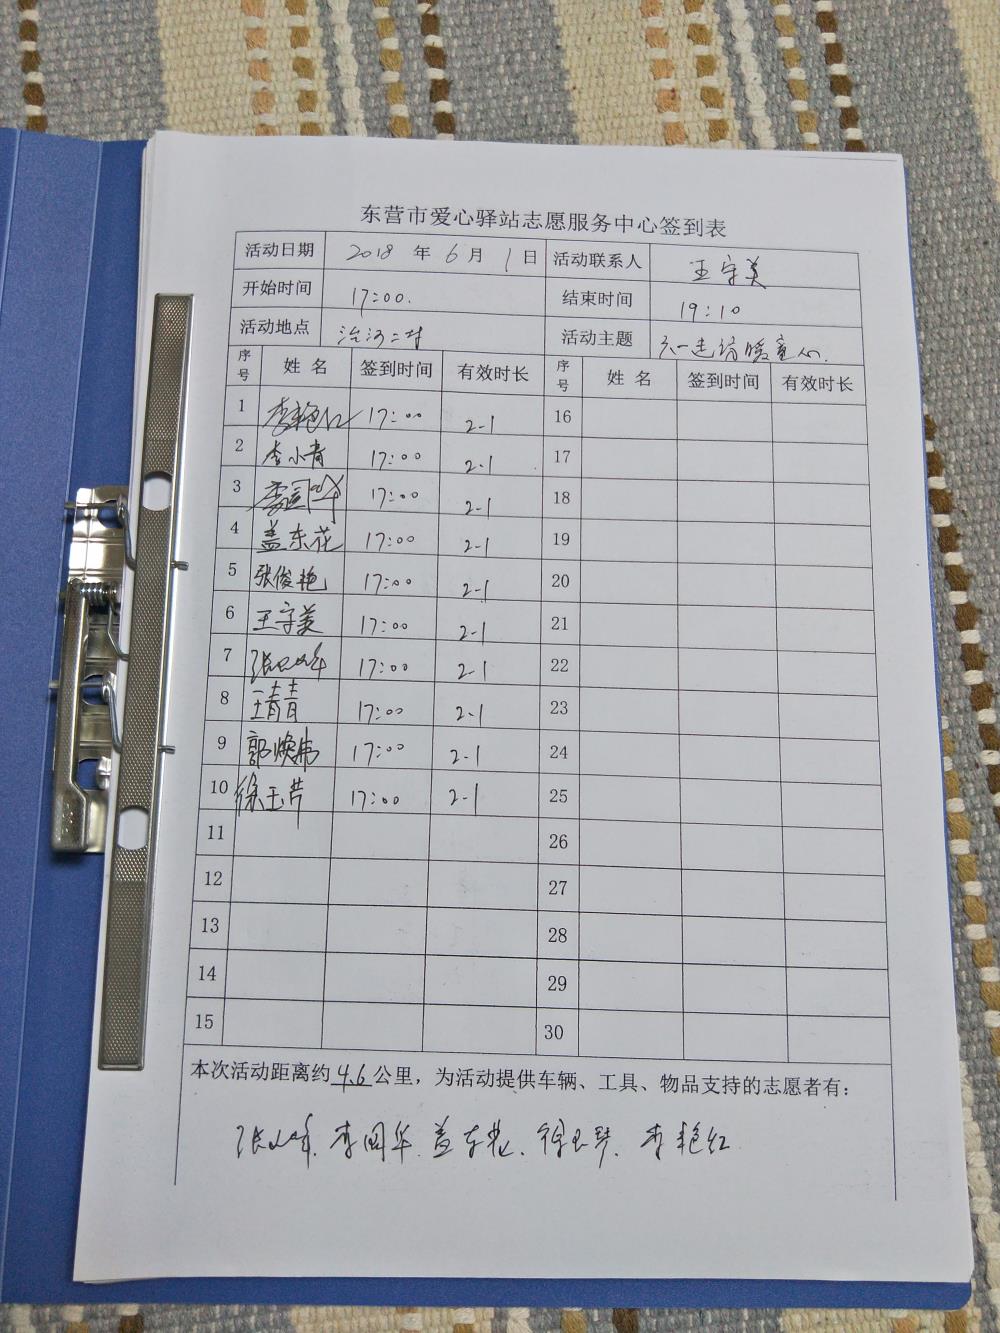 东营市爱心驿站志愿服务中心签到表
活动日期 2018 年 6 月 1 日 活动联系人 王守美
开始时间 17:00. 结束时间 19:10
活动地点 治河二村 活动主题 六一走访暖童心.
序号 姓名 签到时间 有效时长 序号 姓名 签到时间 有效时长
1 李艳红 17:00 2.1 16
2 李小青 17:00 2.1 17
3 李国华 17:00 2.1 18
4 盖东花 17:00 2.1 19
5 张俊艳 17:00 2.1 20
6 王守美 17:00 2.1 21
7 17:00 2.1 22
8 王青青 17:00 2.1 23
9 郭焕伟 17:00 2.1 24
10 徐玉芹 17:00 2.1 25
11 26
12 27
13 28
14 29
15 30
本次活动距离约4.6公里，为活动提供车辆、工具、物品支持的志愿者有：
李国华、盖东花、李艳红